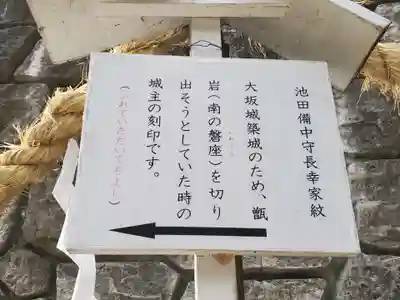 池田備中守長幸家紋
大坂城築城のため、甑
岩(南の磐座)を切り
出そうとしていた時の
城主の刻印です。
(ふれていただいてもよし)